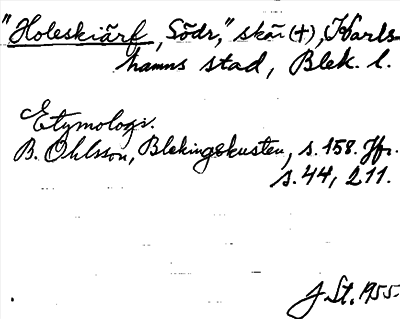 "Holeskiärf, Södr," skär (+), Karls-
hamns stad, Blek. l.
Etymologi.
B. Ohlsson, Blekingekusten, s. 158. Jfr.
s. 44, 211.
J. St. 1955.